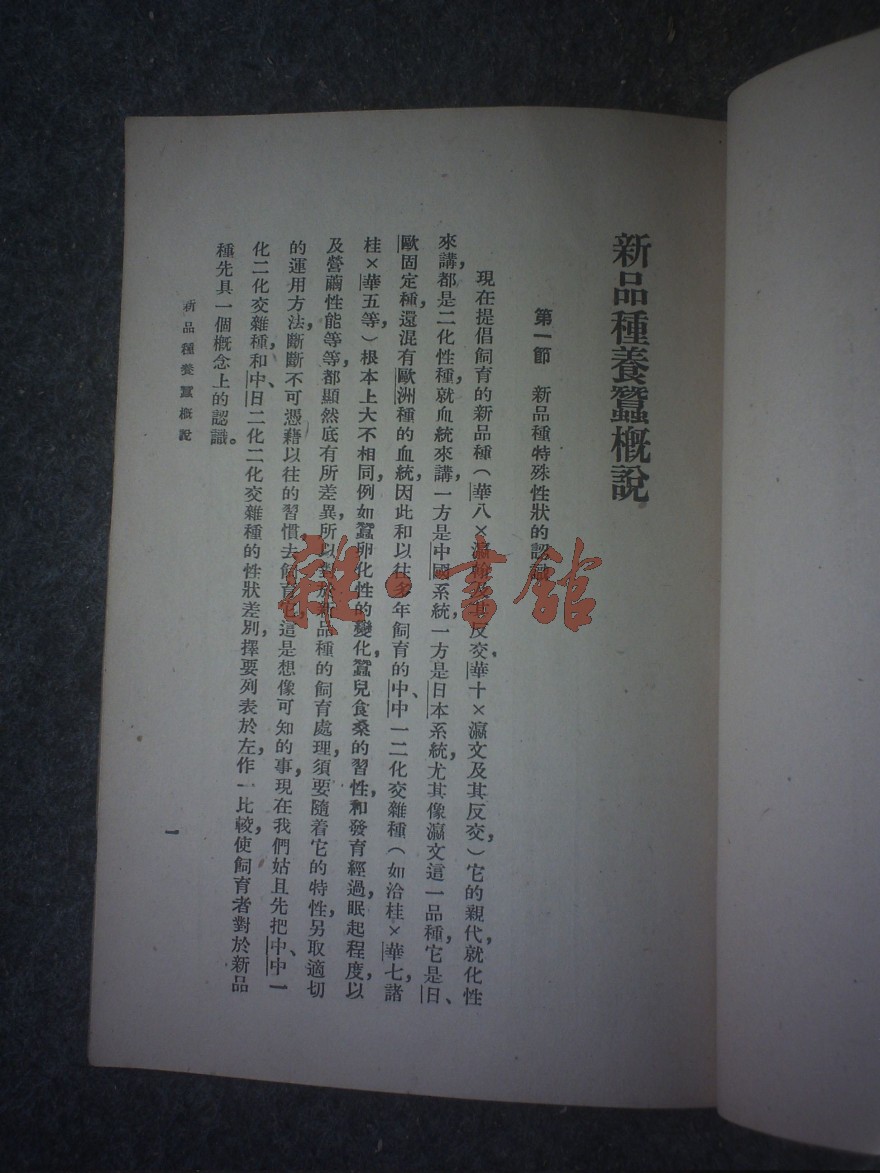 新品種養蠶概說
第一節　新品種特殊性狀的認識
現在提倡飼育的新品種（華八×瀛翰及其反交，華十×瀛文及其反交）它的親代，就化性
來講，都是二化性種，就血統來講，一方是中國系統，一方是日本系統，尤其像瀛文這一品種，它是日、
歐固定種，還混有歐洲種的血統，因此和以往多年飼育的中、中一二化交雜種（如洽桂×華七，諸
桂×華五等，）根本上大不相同，例如蠶卵化性的變化，蠶兒食桑的習性，和發育經過，眠起程度，以
及營繭性能等等，都顯然底有所差異，所以對於新品種的飼育處理，須要隨着它的特性，另取適切
的運用方法，斷斷不可憑藉以往的習慣去飼育它，這是想像可知的事，現在我們姑且先把中、中一
化二化交雜種，和中、日二化二化交雜種的性狀差別，擇要列表於左，作一比較，使飼育者對於新品
種先具一個概念上的認識。
新品種養蠶概說
一
雜·書館